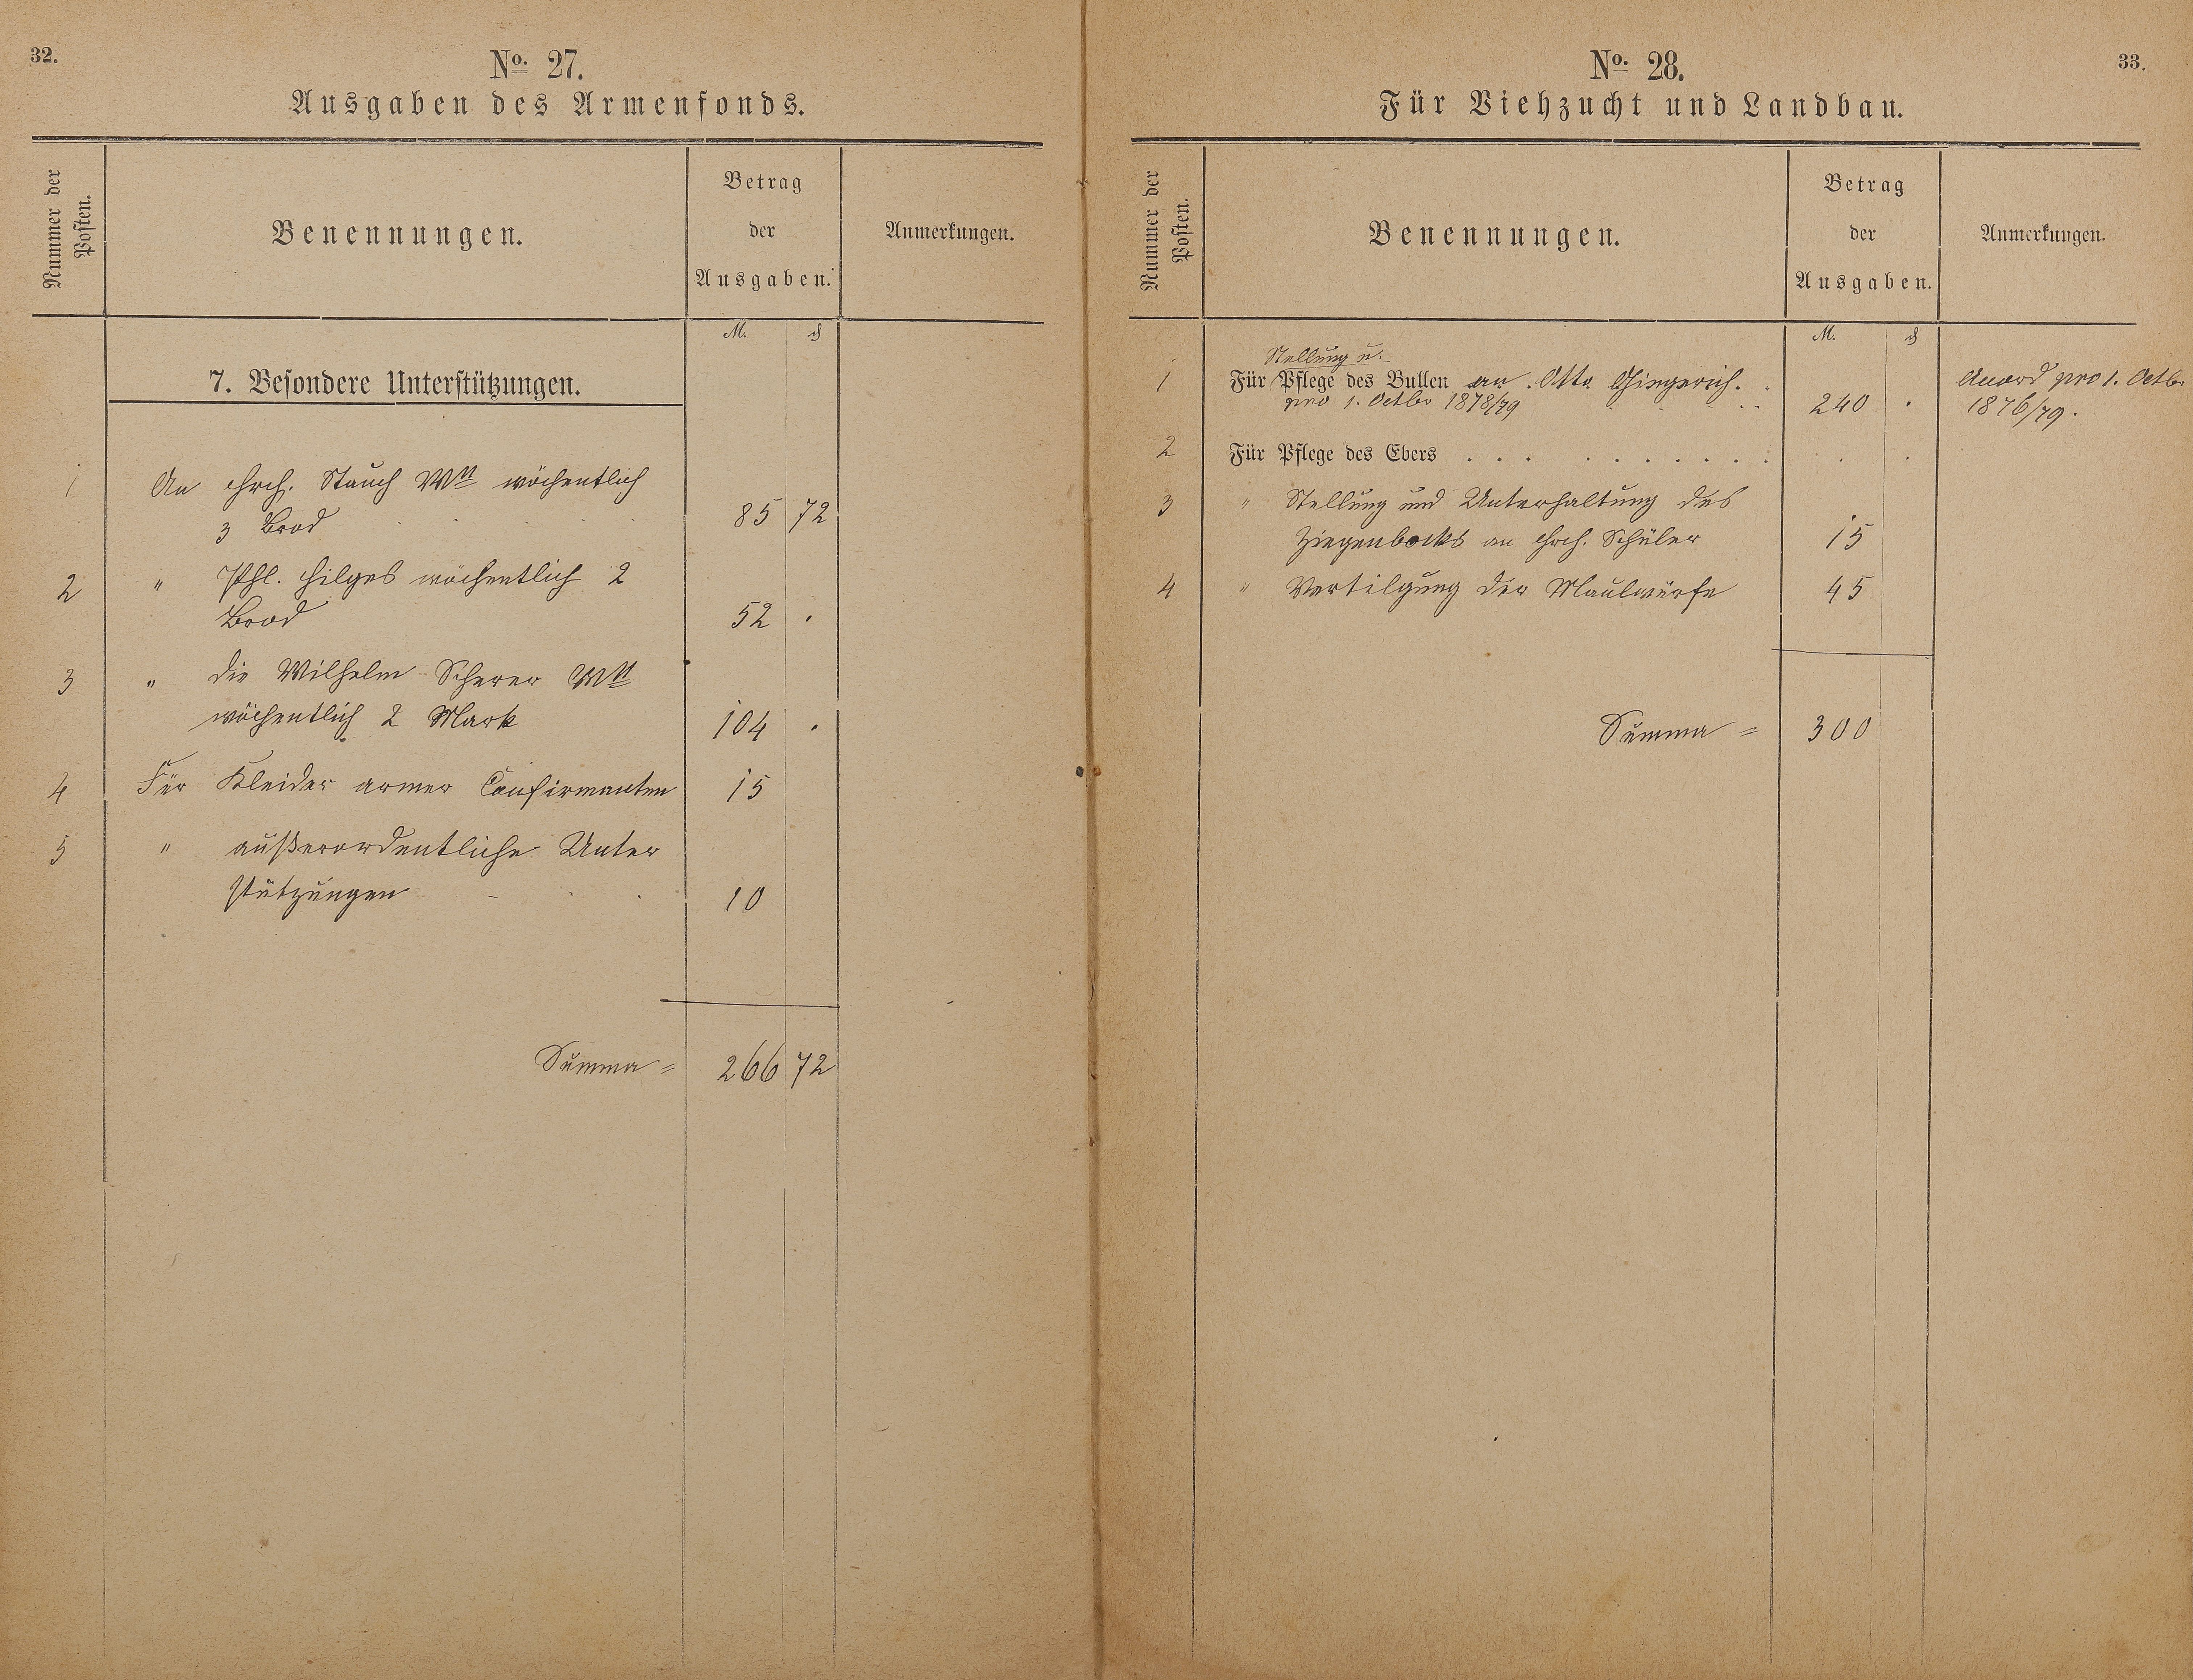 32.
No. 27.
Ausgaben des Armenfonds.
Nummer der
Posten.
Benennungen.
Betrag
der
Ausgaben.
Anmerkungen.
M. ₰
7. Besondere Unterstützungen.
1 An Hrch. Stauch Wtt wöchentlich
3 Brod 85 72
2 " Phl. Hilges wöchentlich 2
Brod 52 .
3 " die Wilhelm Scherer Wtt
wöchentlich 2 Mark 104 .
4 Für Kleider armer Confirmanten 15
5 " außerordentliche Unter
stützungen 10
Summa = 266 72
33.
No. 28.
Für Viehzucht und Landbau.
Nummer der
Posten.
Benennungen.
Betrag
der
Ausgaben.
Anmerkungen.
M. ₰
Stellung u.
1 Für Pflege des Bullen an Otto Gingerich.
pro 1. Octbr 1878/79 240 .
Accord pro 1. Octbr
1876/79.
2 Für Pflege des Ebers . . . . . . . . . .
3 " Stellung und Unterhaltung des
Ziegenbocks an Hrch. Schüler 15
4 " Vertilgung der Maulwürfe 45
Summa = 300